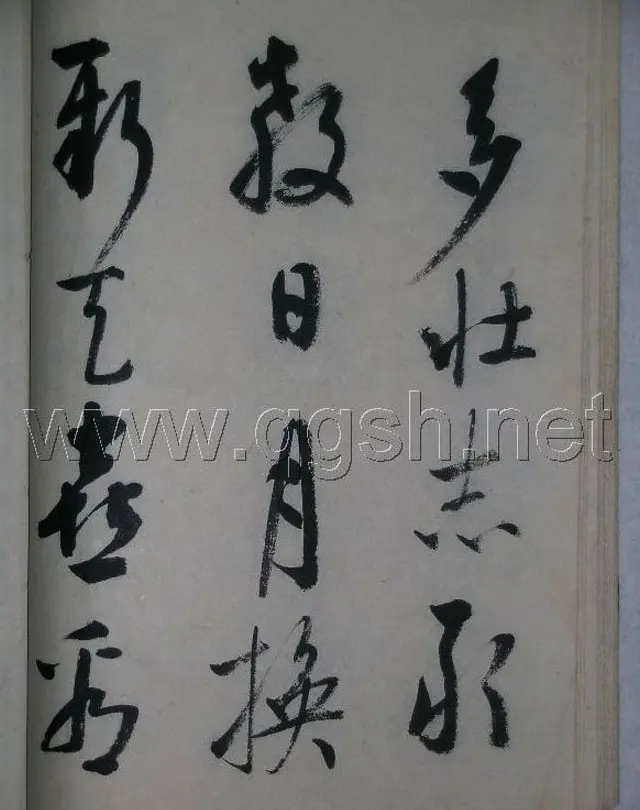 多壮志敢
教日月换
新天喜看
www.qgsh.net